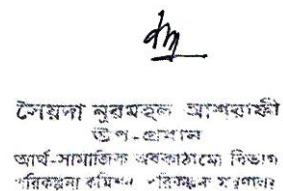 সৈয়দা নুরমহল আশরাফী
উপ-প্রধান
আর্থ-সামাজিক অবকাঠামো বিভাগ
পরিকল্পনা কমিশন পরিকল্পনা মন্ত্রণালয়